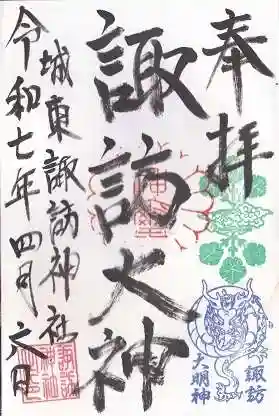 奉拝
諏訪大神
城東諏訪神社
令和七年四月六日
諏訪
大明神